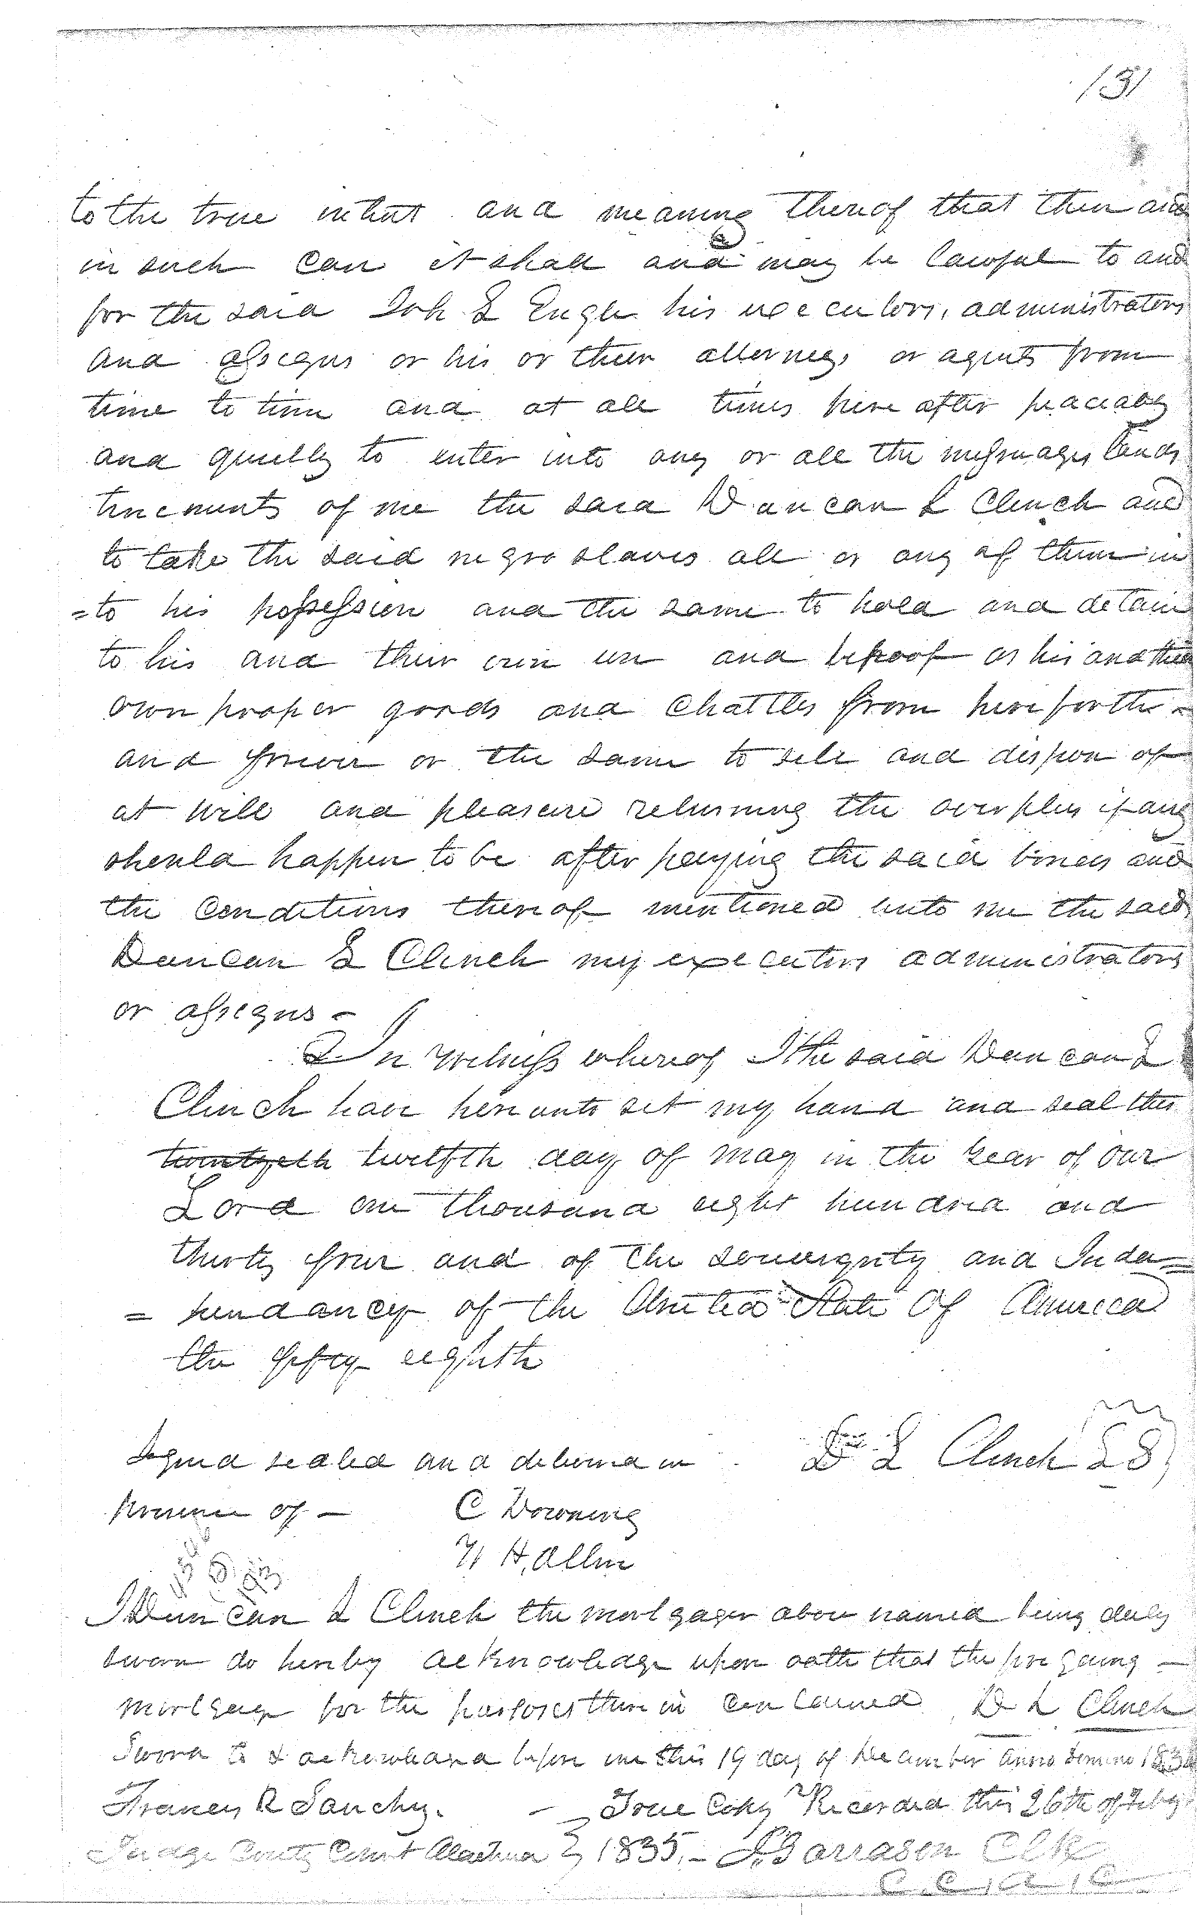 131
to the true intent and meaning thereof that then and
in such case it shall and may be lawful to and
for the said Joh L Engle his executors, administrators
and assigns or his or their attorneys or agents from
time to time and at all times here after peaceably
and quietly to enter into any or all the messuages lands
tenements of me the said Duncan L Clinch and
to take the said negro slaves all or any of them in
=to his possession and the same to hold and detain
to his and their own use and behoof as his and their
own proper goods and Chattles from hence forth
and forever or the same to sell and dispose of
at will and pleasure returning the overplus if any
should happen to be after paying the said bonds and
the Conditions thereof mentioned unto me the said
Duncan L Clinch my executors administrators
or assigns -
In witness whereof I the said Duncan L
Clinch have hereunto set my hand and seal this
twentyeth twelfth day of may in the year of our
Lord one thousand eight hundred and
thirty four and of the sovereignty and Inde=
= pendancy of the United State Of America
the fifty eighth
Signed sealed and delivered in D L Clinch LS
presence of - C Downing
W H, Allen
I Duncan L Clinch the mortgager above named being duly
sworn do hereby acknowledge upon oath that the foregoing -
mortgage for the purposes therein contained D L Clinch
Sworn to & acknowledged before me this 19 day of December anno domino 1834
Francis R Sanchez. - True Copy Recorded this 26th of Feby
Judge County Court Alachua } 1835, - J. Garrason Clk
C. C. A. C.